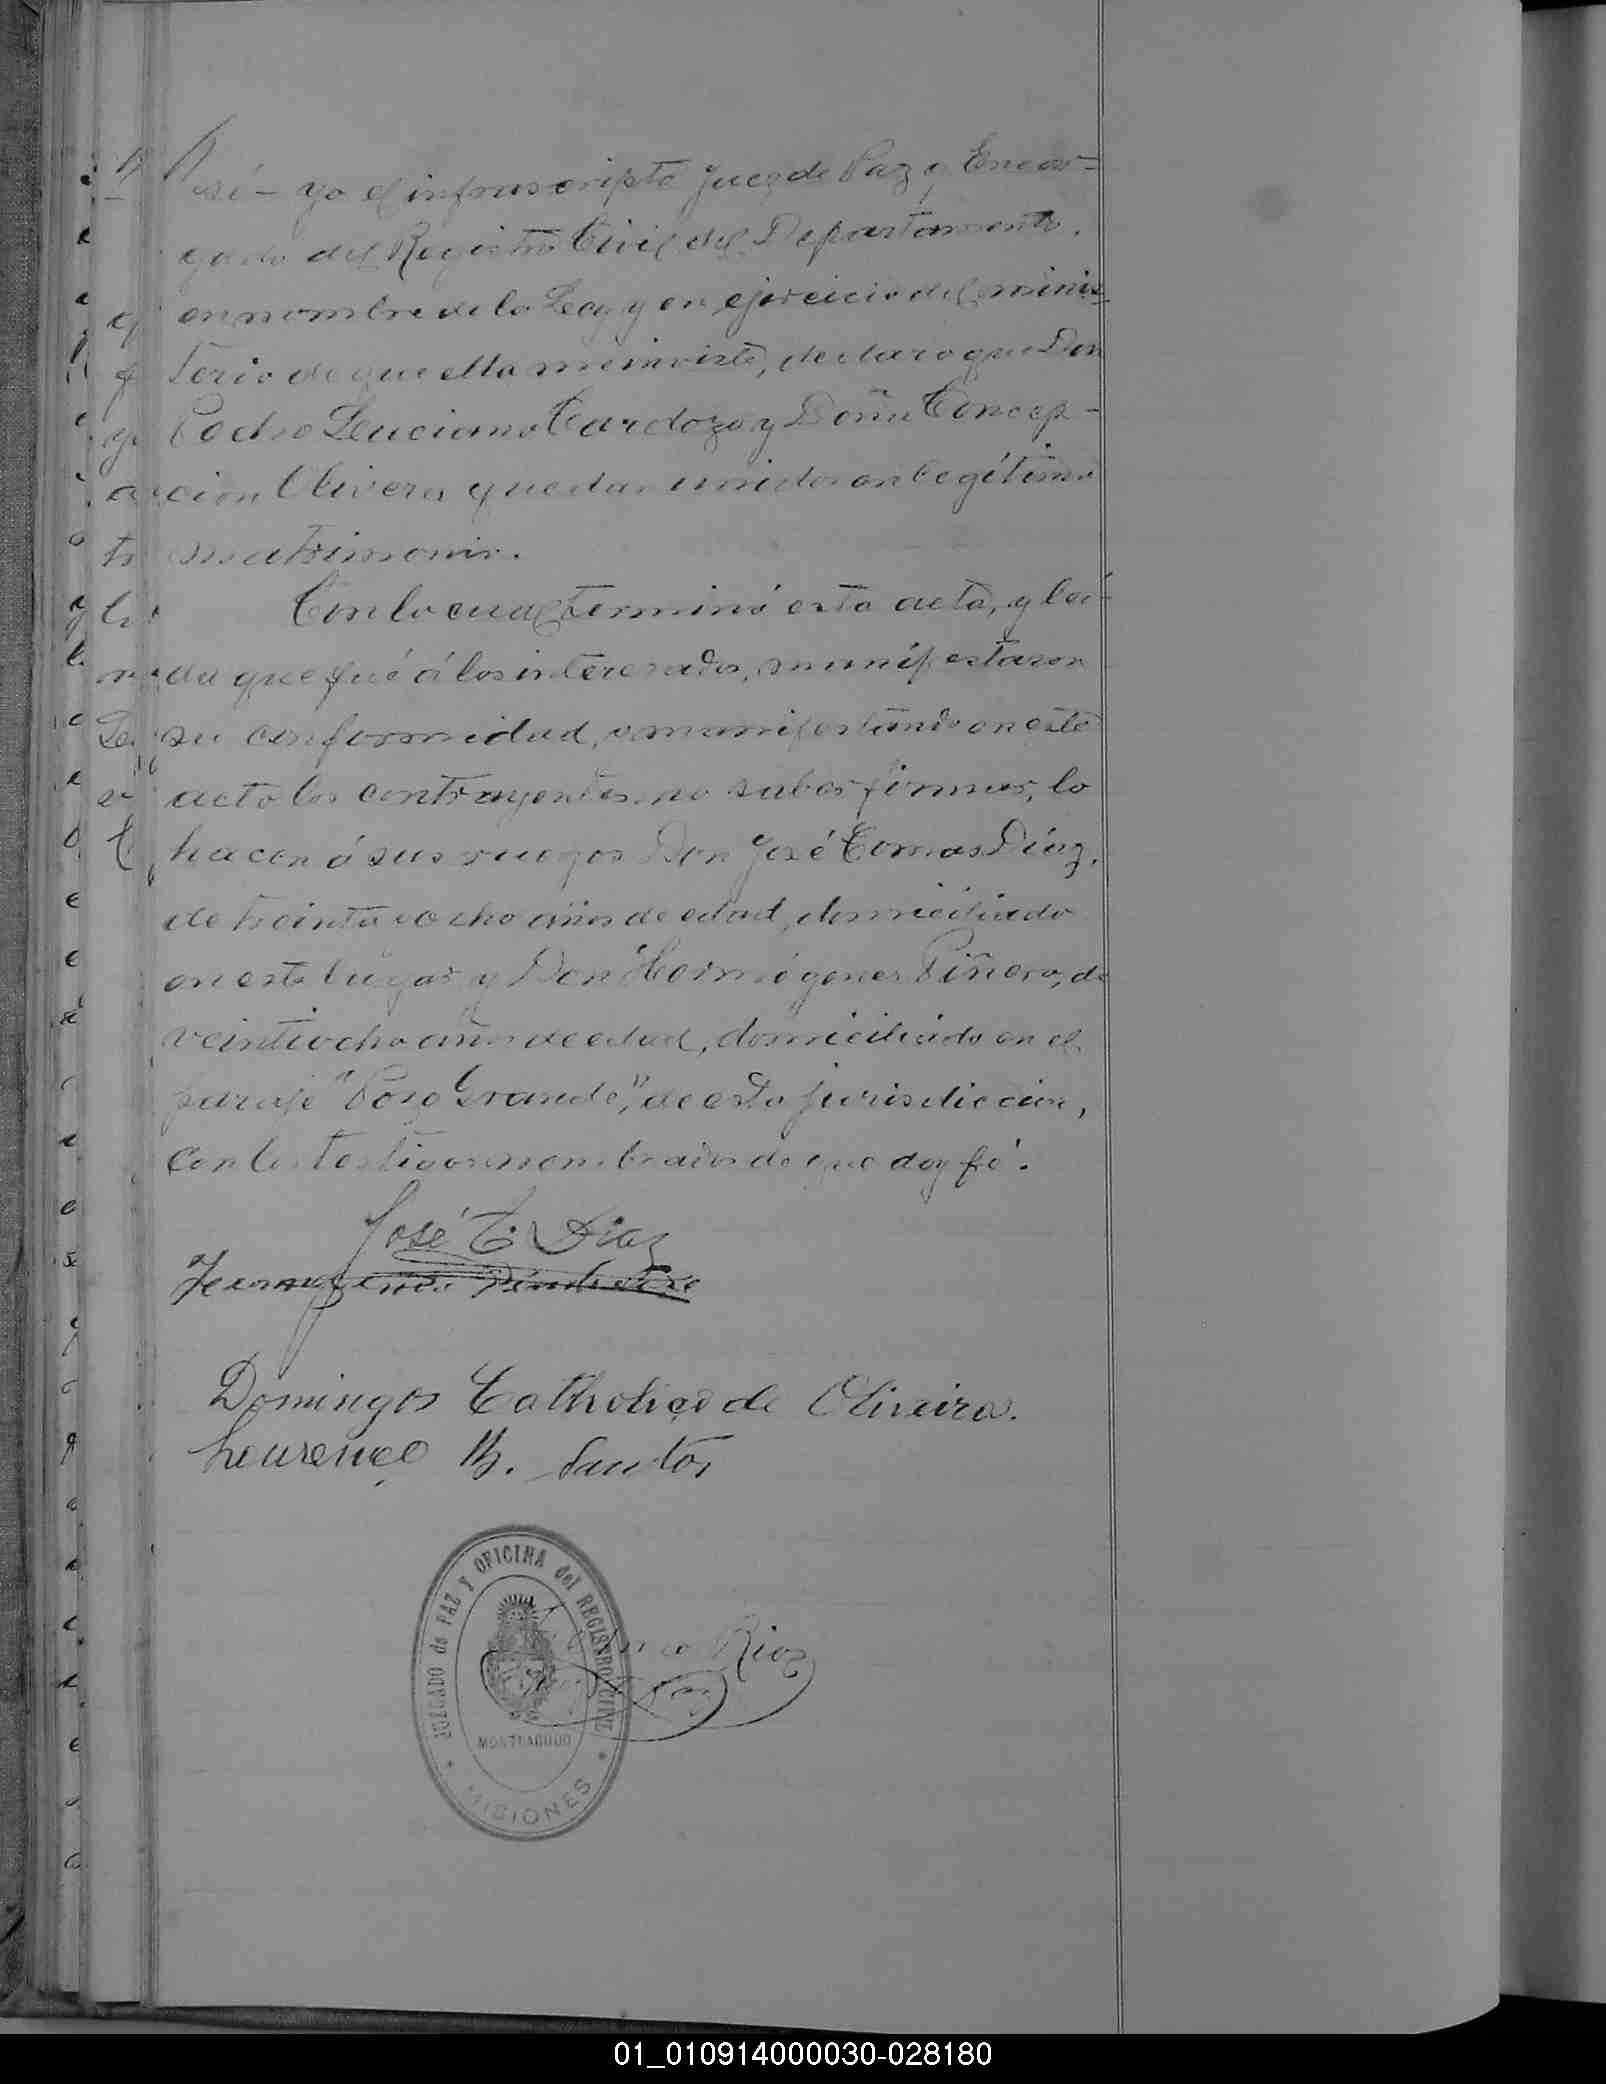 sé - yo el infrascripto Juez de Paz y Encar-
gado del Registro Civil del Departamento,
en nombre de la Ley y en ejercicio del minis
terio de que ella me inviste, declaro que Don
Pedro Luciano Cardozo y Doña Concep-
cion Olivera quedan unidos en legítimo
matrimonio.
Con lo cual terminó esta acta, y lei-
da que fué á los interesados, manifestaron
su conformidad, manifestando en este
acto los contrayentes no saber firmar, lo
hacen á sus ruegos Don José Tomas Díaz,
de treinta y ocho años de edad, domiciliado
en este lugar y Don Hermógenes Piñero, de
veintiocho años de edad, domiciliado en el
paraje "Pozo Grande", de esta jurisdiccion,
con los testigos nombrados de que doy fé.
José T. Diaz
Domingos Catholico de Oliveira.
Lourenço M. Santos
JUZGADO de PAZ Y OFICINA del REGISTRO CIVIL
Rios
MONTEAGUDO
MISIONES
01_010914000030-028180